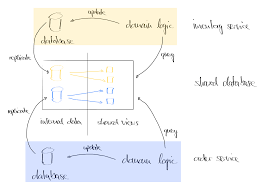 update
domain logic
inventory service
database
replicate
query
shared database
internal data
shared views
replicate
query
update
database
domain logic
order service